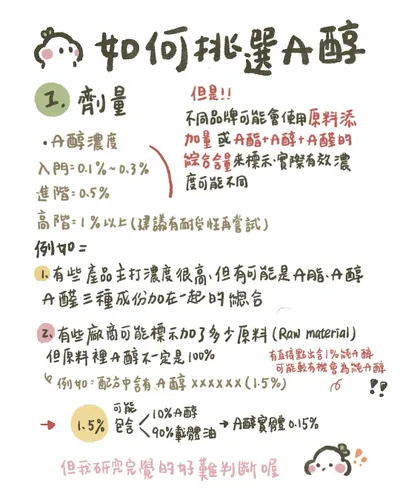 如何挑選A醇
1. 劑量
但是!!
不同品牌可能會使用原料添
加量或A酯+A醇+A醛的
綜合含量來標示,實際有效濃
度可能不同
•A醇濃度
入門=0.1%~0.3%
進階=0.5%
高階=1%以上(建議有耐受性再嘗試)
例如=
1.有些產品主打濃度很高,但有可能是A脂、A醇
A醛三種成份加在一起的總合
2.有些廠商可能標示加了多少原料(Raw material)
但原料裡A醇不一定是100%
有直接點出含1%純A醇
可能較有機會為純A醇
例如=配方中含有A醇xxxxxx(1.5%)
!!
→1.5% 可能包含 10%A醇 90%載體油 → A醇實體0.15%
但我研究完覺的好難判斷喔